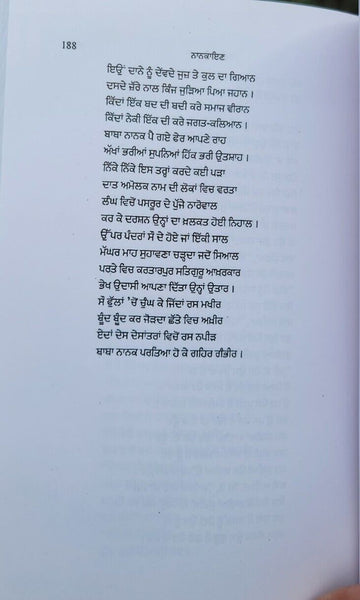 188
ਨਾਨਕਾਇਣ
ਇਉਂ ਦਾਨੇ ਨੂੰ ਦੇਂਵਦੇ ਜੁਜ਼ ਤੇ ਕੁਲ ਦਾ ਗਿਆਨ
ਦਸਦੇ ਜ਼ੱਰੇ ਨਾਲ ਕਿੰਜ ਜੁੜਿਆ ਪਿਆ ਜਹਾਨ।
ਕਿੱਦਾਂ ਇੱਕ ਬਦ ਦੀ ਬਦੀ ਕਰੇ ਸਮਾਜ ਵੀਰਾਨ
ਕਿੱਦਾਂ ਨੇਕੀ ਇੱਕ ਦੀ ਕਰੇ ਜਗਤ-ਕਲਿਆਨ।
ਬਾਬਾ ਨਾਨਕ ਪੈ ਗਏ ਫੇਰ ਆਪਣੇ ਰਾਹ
ਅੱਖਾਂ ਭਰੀਆਂ ਸੁਪਨਿਆਂ ਹਿੱਕ ਭਰੀ ਉਤਸ਼ਾਹ।
ਨਿੱਕੇ ਨਿੱਕੇ ਇਸ ਤਰ੍ਹਾਂ ਕਰਦੇ ਕਈ ਪੜਾ
ਦਾਤ ਅਮੋਲਕ ਨਾਮ ਦੀ ਲੋਕਾਂ ਵਿਚ ਵਰਤਾ
ਲੰਘ ਵਿਚੋਂ ਪਸਰੂਰ ਦੇ ਪੁੱਜੇ ਨਾਰੋਵਾਲ
ਕਰ ਕੇ ਦਰਸ਼ਨ ਉਨ੍ਹਾਂ ਦਾ ਖ਼ਲਕਤ ਹੋਈ ਨਿਹਾਲ।
ਉੱਪਰ ਪੰਦਰਾਂ ਸੌ ਦੇ ਹੋਏ ਜਾਂ ਇੱਕੀ ਸਾਲ
ਮੱਘਰ ਮਾਹ ਸੁਹਾਵਣਾ ਚੜ੍ਹਦਾ ਜਦੋਂ ਸਿਆਲ
ਪਰਤੇ ਵਿਚ ਕਰਤਾਰਪੁਰ ਸਤਿਗੁਰੂ ਆਖ਼ਰਕਾਰ
ਭੇਖ ਉਦਾਸੀ ਆਪਣਾ ਦਿੱਤਾ ਉਨ੍ਹਾਂ ਉਤਾਰ।
ਸੌ ਫੁੱਲਾਂ 'ਚੋਂ ਚੂੰਘ ਕੇ ਜਿੱਦਾਂ ਰਸ ਮਖੀਰ
ਬੂੰਦ ਬੂੰਦ ਕਰ ਜੋੜਦਾ ਛੱਤੇ ਵਿਚ ਅਖ਼ੀਰ
ਏਦਾਂ ਦੇਸ ਦੇਸਾਂਤਰਾਂ ਵਿਚੋਂ ਰਸ ਨਪੀੜ
ਬਾਬਾ ਨਾਨਕ ਪਰਤਿਆ ਹੋ ਕੇ ਗਹਿਰ ਗੰਭੀਰ।